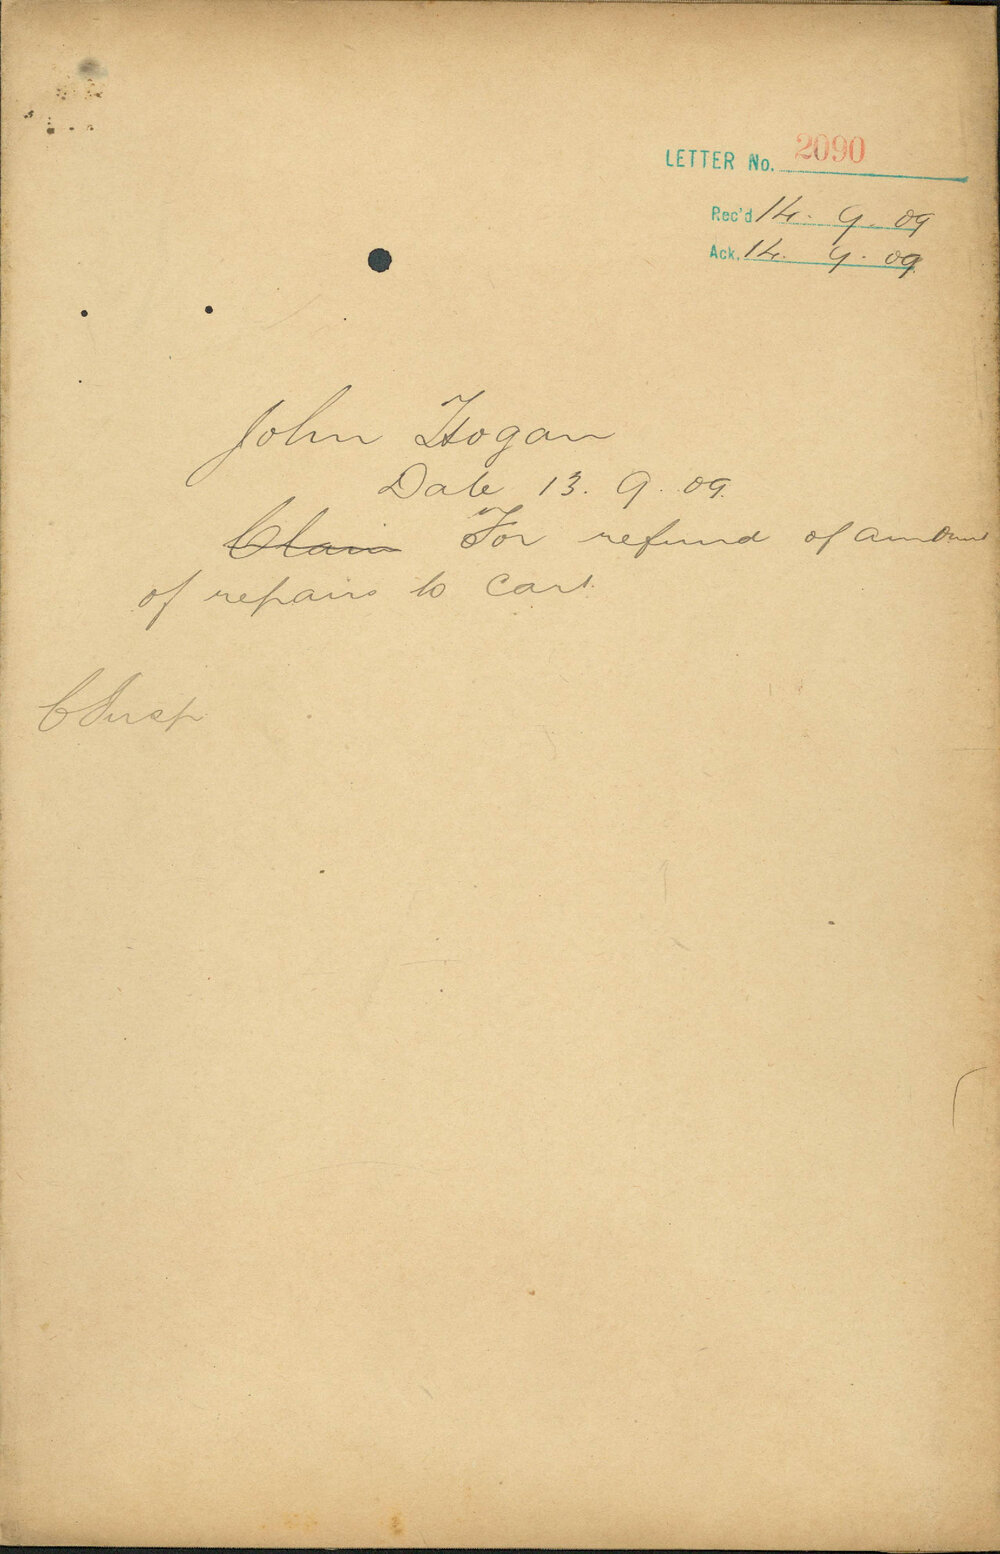 LETTER No. 2090
Rec'd 14. 9. 09
Ack. 14. 9. 09
John Hogan
Date 13. 9. 09.
Claim For refund of amount
of repairs to Cart.
C Insp